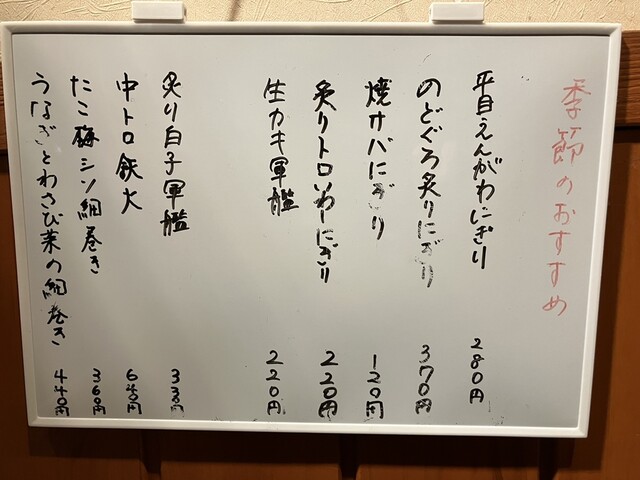 季節のおすすめ
平目えんがわにぎり 280円
のどぐろ炙りにぎり 370円
焼サバにぎり 120円
炙りトロいわしにぎり 220円
生カキ軍艦 220円
炙り白子軍艦 330円
中トロ鉄火 640円
たこ梅シソ細巻き 360円
うなぎとわさび菜の細巻き 440円